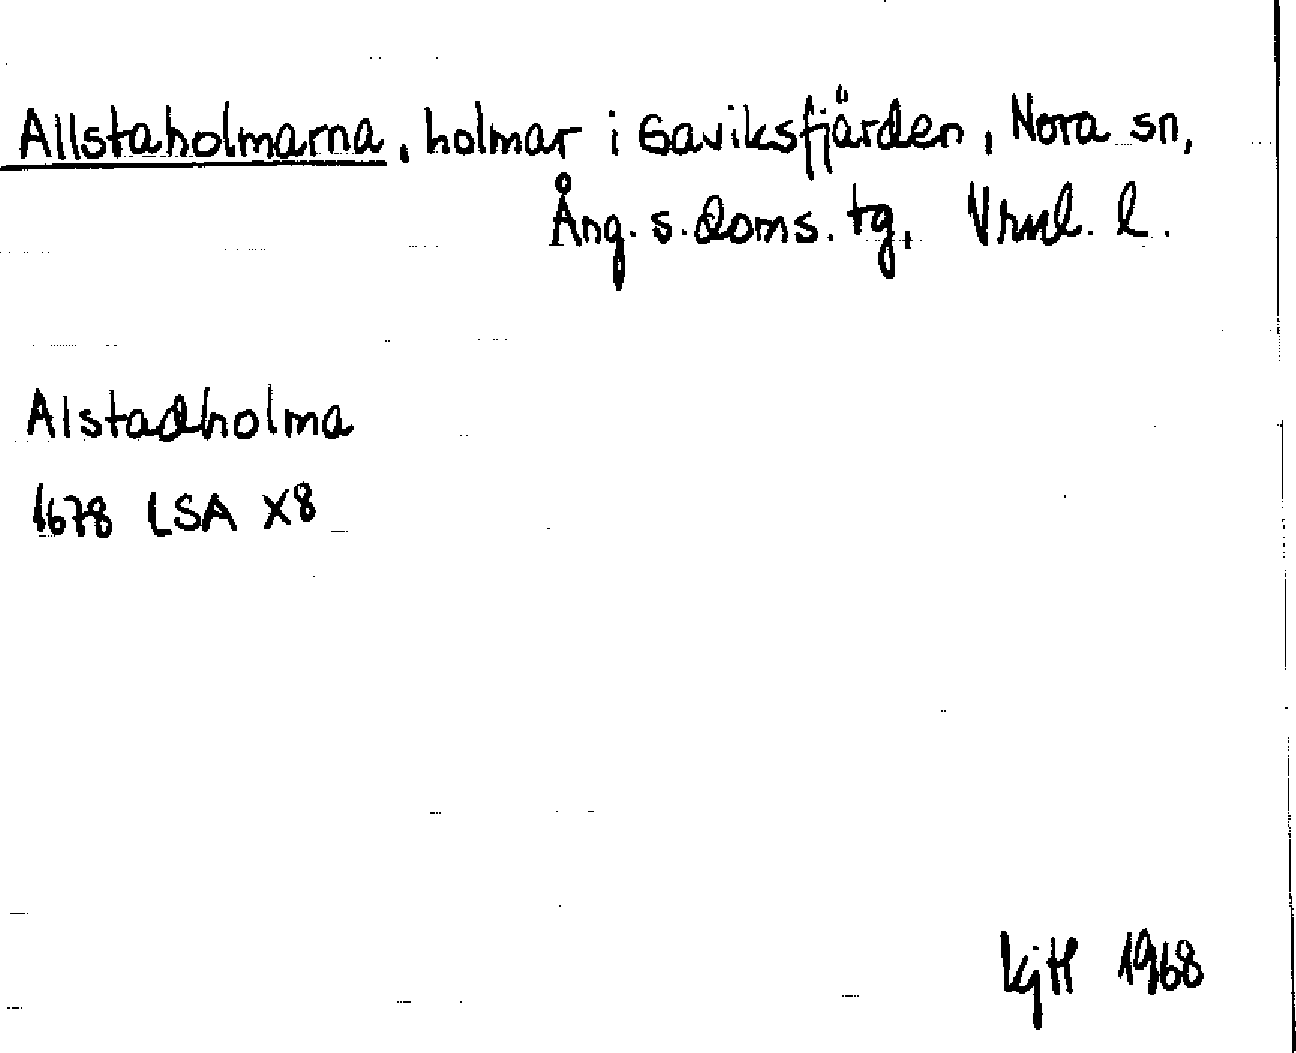 Allstaholmarna, holmar i Gaviksfjärden, Nora sn,
Ång. s. doms. tg, Vrnl. l.
Alstadholma
1678 LSA X8
KjH 1968